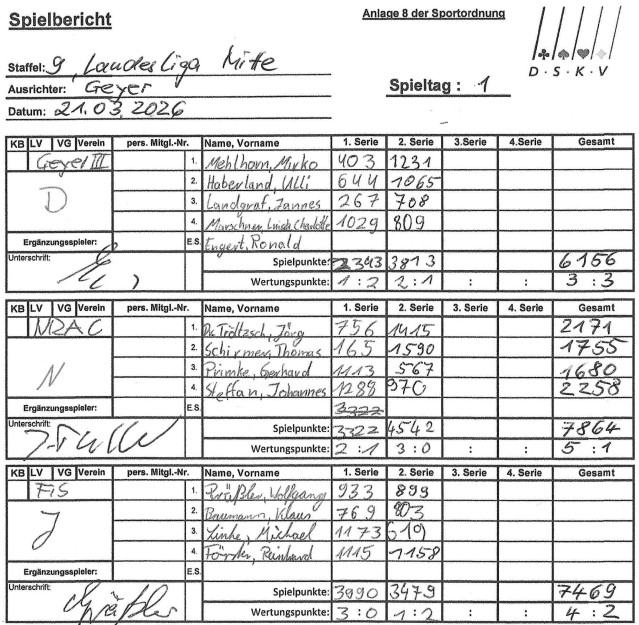 Spielbericht
Anlage 8 der Sportordnung
D · S · K · V
Staffel: 9, Landesliga Mitte
Ausrichter: Geyer
Spieltag : 1
Datum: 21.03.2026
KB LV VG Verein pers. Mitgl.-Nr. Name, Vorname 1. Serie 2. Serie 3.Serie 4.Serie Gesamt
Geyer III 1. Mehlhorn, Mirko 403 1231
D 2. Haberland, Ulli 644 1065
3. Landgraf, Jannes 267 708
4. Marschner, Luisa Charlotte 1029 809
Ergänzungsspieler: E.S. Engert, Ronald
Unterschrift: Spielpunkte: 2343 3813 6156
Wertungspunkte: 1 : 2 2 : 1 : : 3 : 3
KB LV VG Verein pers. Mitgl.-Nr. Name, Vorname 1. Serie 2. Serie 3. Serie 4. Serie Gesamt
MZAC 1. Dr. Tröltzsch, Jörg 756 1415 2171
N 2. Schirmer, Thomas 165 1590 1755
3. Primke, Gerhard 1113 567 1680
4. Steffan, Johannes 1288 970 2258
Ergänzungsspieler: E.S. 3322
Unterschrift: Spielpunkte: 3322 4542 7864
Wertungspunkte: 2 : 1 3 : 0 : : 5 : 1
KB LV VG Verein pers. Mitgl.-Nr. Name, Vorname 1. Serie 2. Serie 3. Serie 4. Serie Gesamt
FiS 1. Präßler, Wolfgang 933 899
J 2. Baumann, Klaus 769 803
3. Linke, Michael 1173 619
4. Förster, Reinhard 1115 1158
Ergänzungsspieler: E.S.
Unterschrift: Präßler Spielpunkte: 3990 3479 7469
Wertungspunkte: 3 : 0 1 : 2 : : 4 : 2